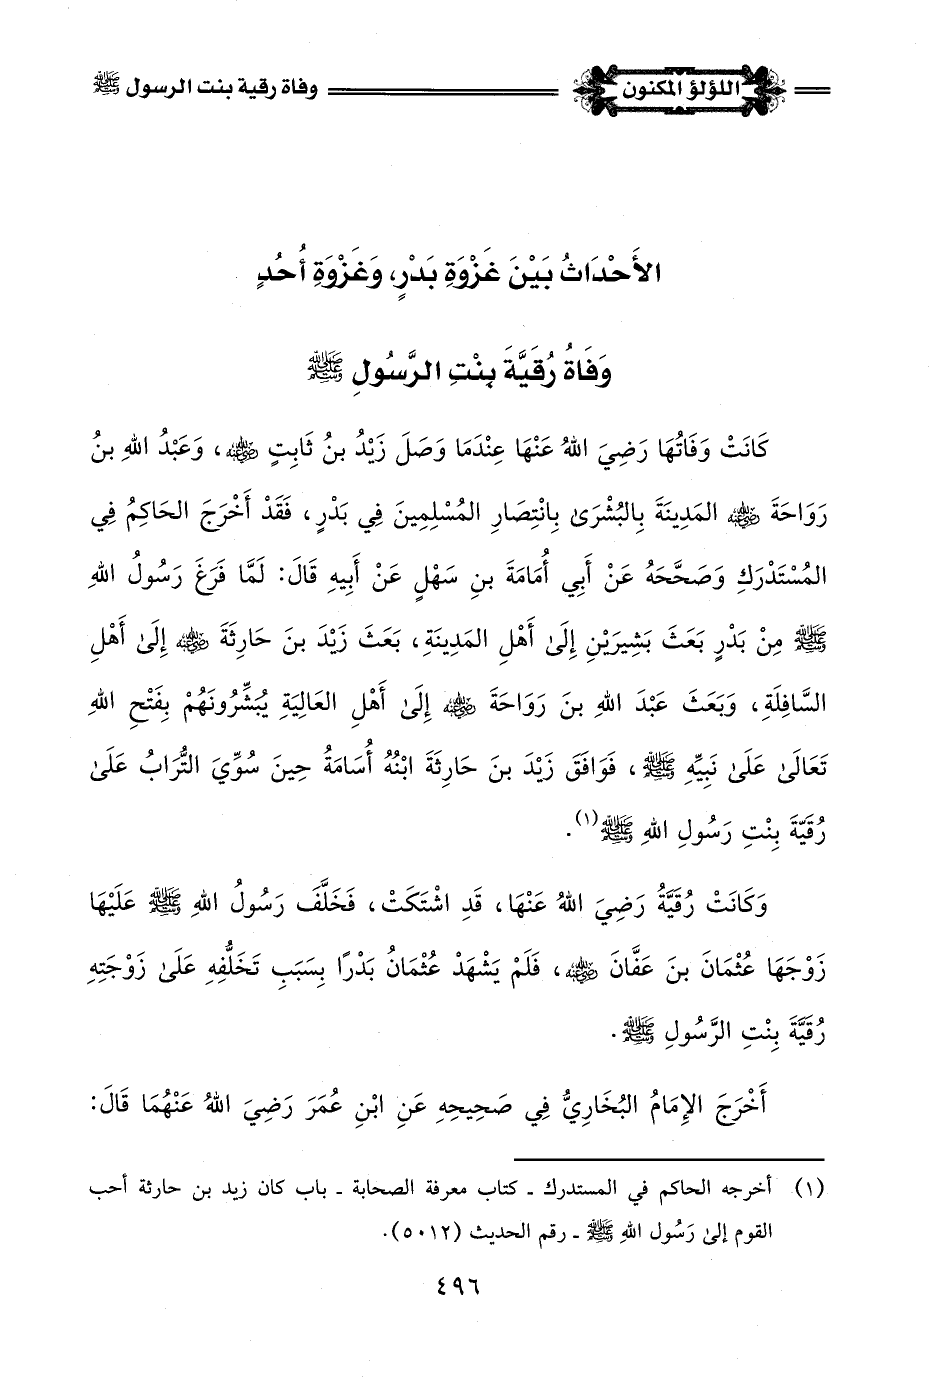 اللؤلؤ المكنون
وفاة رقية بنت الرسول ﷺ
الأَحْدَاثُ بَيْنَ غَزْوَةِ بَدْرٍ، وَغَزْوَةِ أُحُدٍ
وَفَاةُ رُقَيَّةَ بِنْتِ الرَّسُولِ ﷺ
كَانَتْ وَفَاتُهَا رَضِيَ اللهُ عَنْهَا عِنْدَمَا وَصَلَ زَيْدُ بنُ ثَابِتٍ رضي الله عنه، وَعَبْدُ اللهِ بنُ
رَوَاحَةَ رضي الله عنه المَدِينَةَ بِالبُشْرَىٰ بِانْتِصَارِ المُسْلِمِينَ فِي بَدْرٍ، فَقَدْ أَخْرَجَ الحَاكِمُ فِي
المُسْتَدْرَكِ وَصَحَّحَهُ عَنْ أَبِي أُمَامَةَ بنِ سَهْلٍ عَنْ أَبِيهِ قَالَ: لَمَّا فَرَغَ رَسُولُ اللهِ
ﷺ مِنْ بَدْرٍ بَعَثَ بَشِيرَيْنِ إِلَىٰ أَهْلِ المَدِينَةِ، بَعَثَ زَيْدَ بنَ حَارِثَةَ رضي الله عنه إِلَىٰ أَهْلِ
السَّافِلَةِ، وَبَعَثَ عَبْدَ اللهِ بنَ رَوَاحَةَ رضي الله عنه إِلَىٰ أَهْلِ العَالِيَةِ يُبَشِّرُونَهُمْ بِفَتْحِ اللهِ
تَعَالَىٰ عَلَىٰ نَبِيِّهِ ﷺ، فَوَافَقَ زَيْدَ بنَ حَارِثَةَ ابْنُهُ أُسَامَةُ حِينَ سُوِّيَ التُّرَابُ عَلَىٰ
رُقَيَّةَ بِنْتِ رَسُولِ اللهِ ﷺ(١).
وَكَانَتْ رُقَيَّةُ رَضِيَ اللهُ عَنْهَا، قَدِ اشْتَكَتْ، فَخَلَّفَ رَسُولُ اللهِ ﷺ عَلَيْهَا
زَوْجَهَا عُثْمَانَ بنَ عَفَّانَ رضي الله عنه، فَلَمْ يَشْهَدْ عُثْمَانُ بَدْرًا بِسَبَبِ تَخَلُّفِهِ عَلَىٰ زَوْجَتِهِ
رُقَيَّةَ بِنْتِ الرَّسُولِ ﷺ.
أَخْرَجَ الإِمَامُ البُخَارِيُّ فِي صَحِيحِهِ عَنِ ابْنِ عُمَرَ رَضِيَ اللهُ عَنْهُمَا قَالَ:
(١) أخرجه الحاكم في المستدرك ـ كتاب معرفة الصحابة ـ باب كان زيد بن حارثة أحب
القوم إلىٰ رَسُول اللهِ ﷺ ـ رقم الحديث (٥٠١٢).
٤٩٦